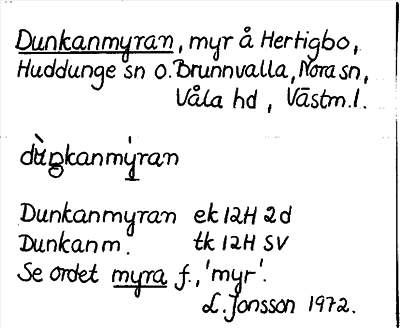 Dunkanmyran, myr å Hertigbo,
Huddunge sn o. Brunnvalla, Nora sn,
Våla hd, Västm.l.
dùŋkanmýran
Dunkanmyran ek 12H 2d
Dunkanm. tk 12H SV
Se ordet myra f., 'myr'.
L. Jonsson 1972.